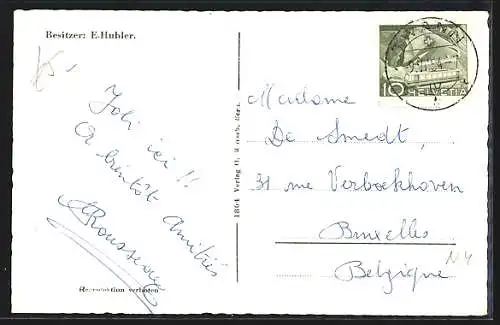 Besitzer: E. Hubler.
Joli ici !!
A bientôt Amitiés
Rousseau
Reproduktion verboten
1864 Verlag
10 HELVETIA
Madame
De Smedt
31 rue Verboekhoven
Bruxelles
Belgique